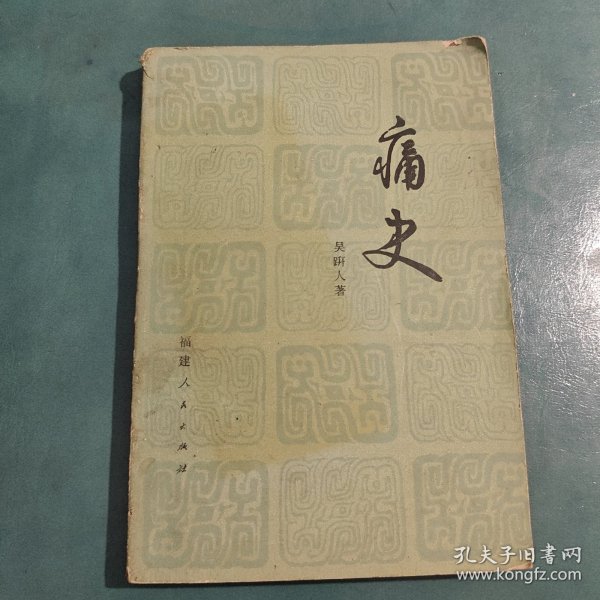 痛史
吴趼人著
福建人民出版社
孔夫子旧书网
www.kongfz.com